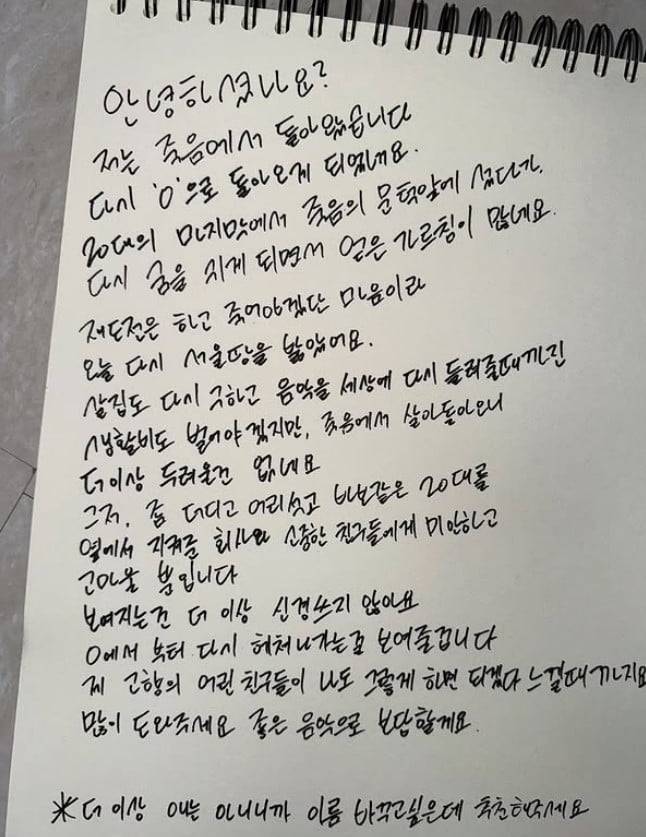 안녕하셨나요?
저는 죽음에서 돌아왔습니다
다시 '0'으로 돌아오게 되었네요.
20대의 마지막에서 죽음의 문턱앞에 섰다가,
다시 숨을 쉬게 되면서 얻은 가르침이 많네요.
재도전은 하고 죽어야겠단 마음이라
오늘 다시 서울땅을 밟았어요.
살집도 다시 구하고 음악을 세상에 다시 들려줄때까진
생활비도 벌어야 겠지만, 죽음에서 살아돌아오니
더이상 두려울건 없네요
그저, 좀 더디고 어리석고 바보같은 20대를
옆에서 지켜준 회사와 소중한 친구들에게 미안하고
고마울 뿐입니다
보여지는건 더 이상 신경쓰지 않아요
0에서 부터 다시 헤쳐나가는걸 보여줄겁니다
제 고향의 어린친구들이 나도 그렇게 하면 되겠다 느낄때까지요
많이 도와주세요 좋은 음악으로 보답할게요.
*더 이상 애는 아니니까 이름 바꾸고싶은데 추천해주세요